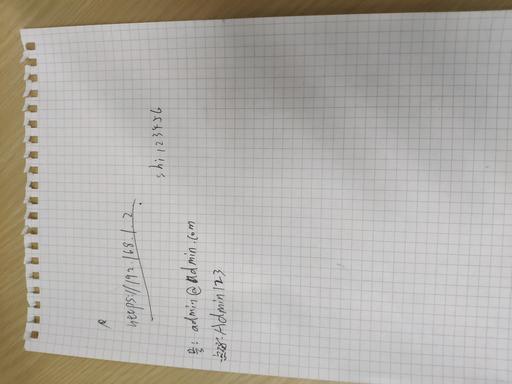 https://192.168.1.2.
shi123456
号: admin@admin.com
Admin123